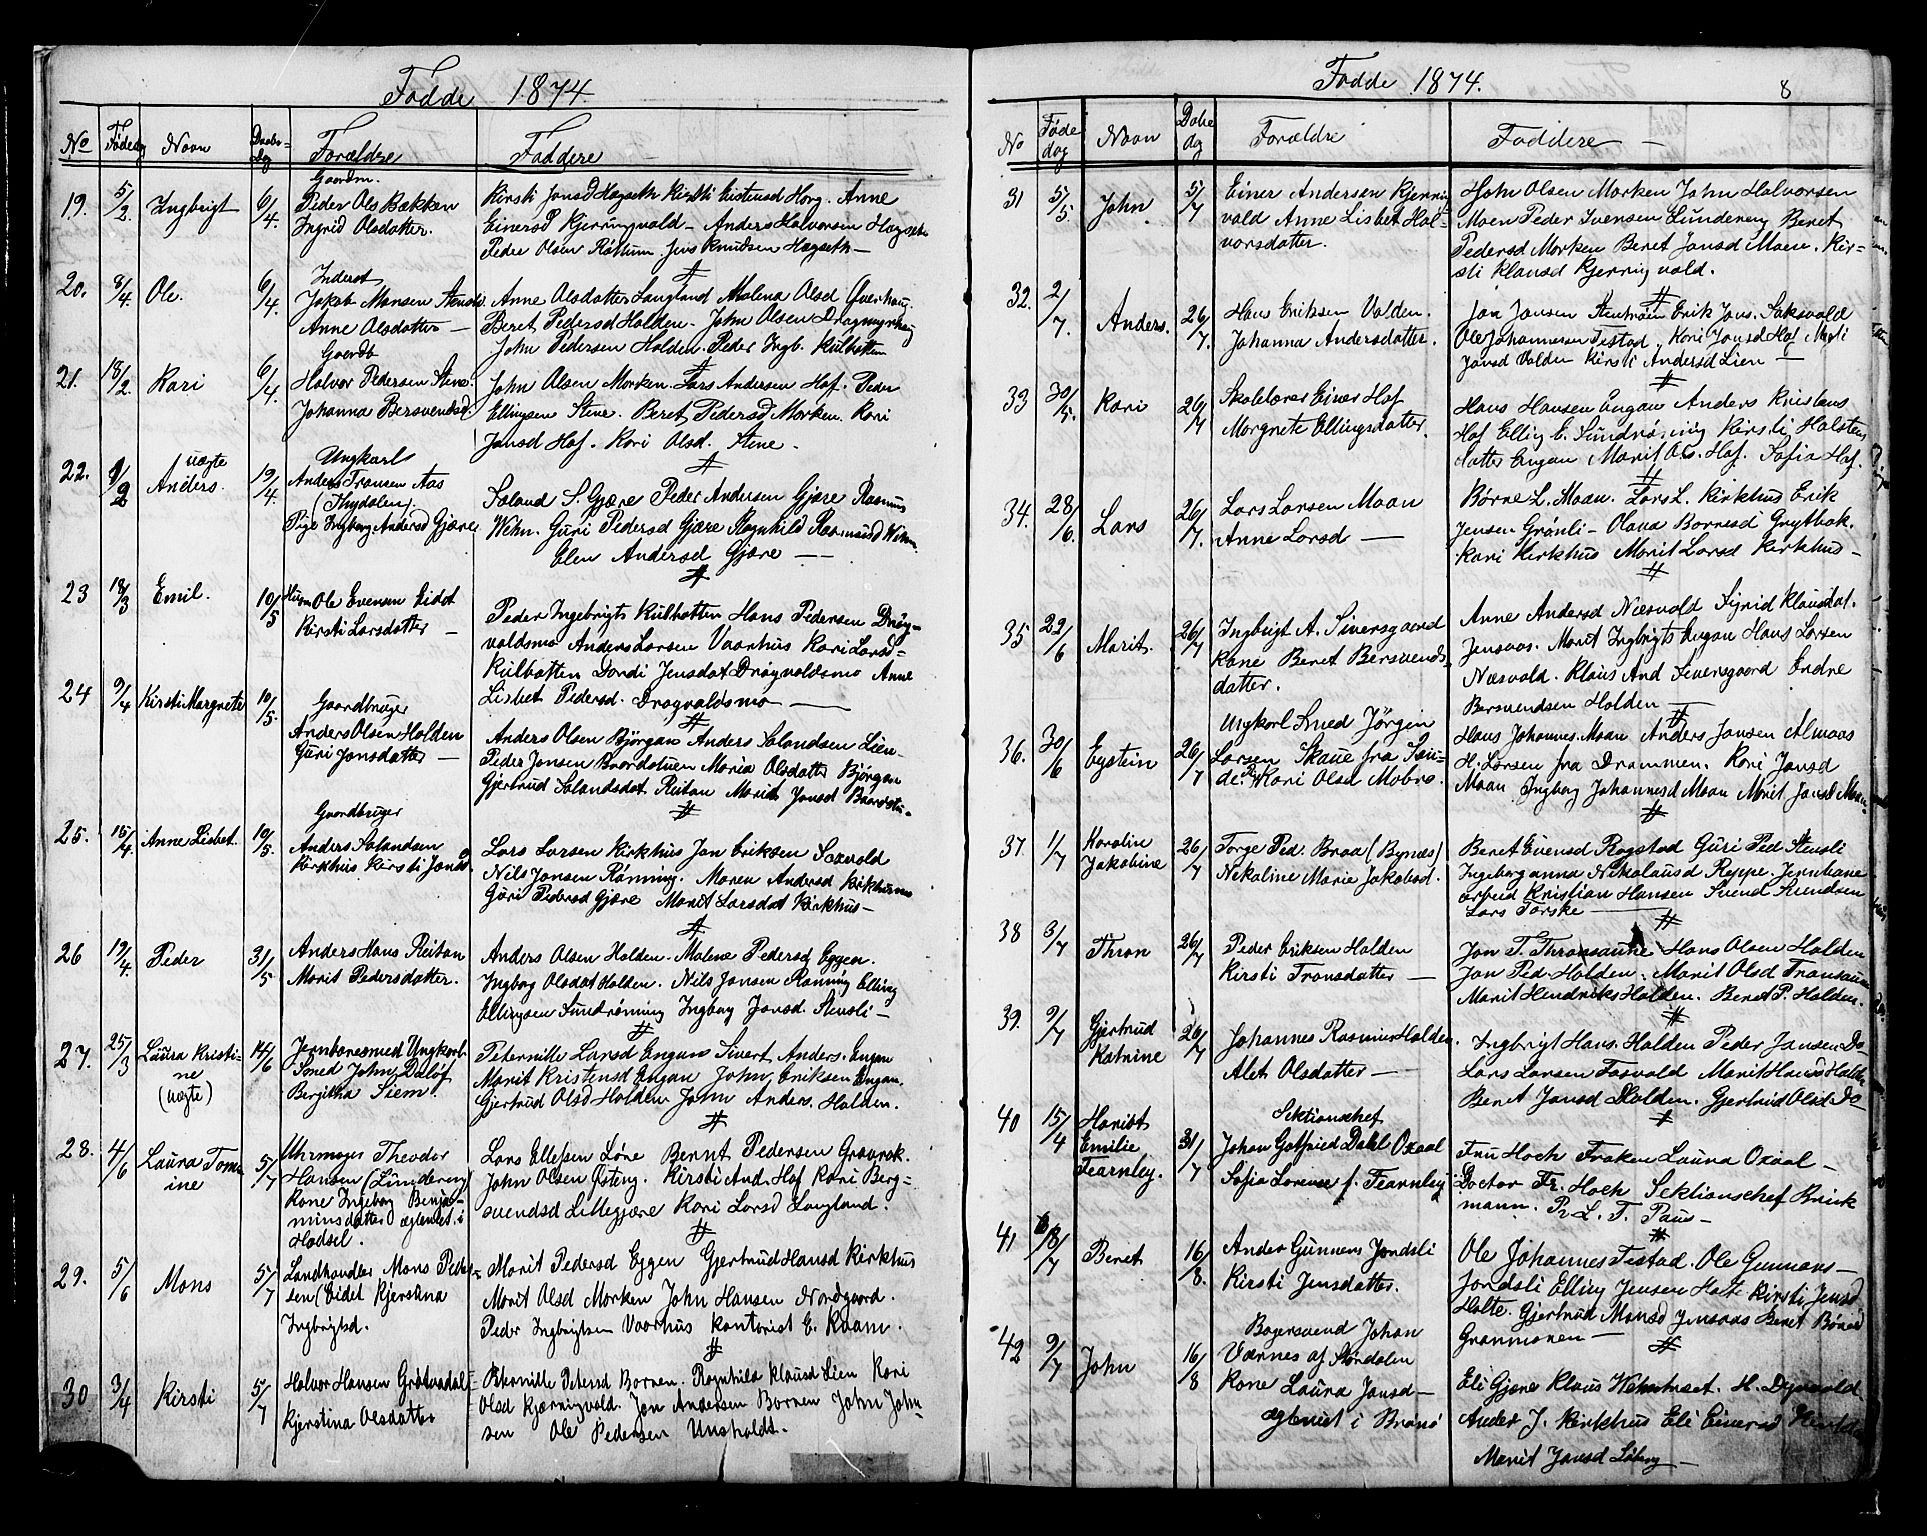 Fødde 1874
No Fødedg Navn Daabs-Dag Forældre Faddere
19. 5/2. Ingbrigt 6/4.
Gaardm.
Peder Ols Bækken
Ingrid Olsdatter.
Kirsti Jonsd Hagseth Kirsti Eistensd Horg. Anne
Einersd Kjerringvald – Anders Halvorsen Hagseth
Peder Olsen Røttum. Jens Knudsen Hagseth –
20. 8/4. Ole. 6/4
Inderst
Jakob Monsen Stensli
Anne Olsdatter –
Anne Olsdatter Langland Malena Olsd Øverhaug.
Beret Pedersd Holden. John Olsen Dragmyrhaug
John Pedersen Holden. Peder Ingb. Kulbotten
21. 18/2. Kari 6/4.
Gaardb
Halvor Pedersen Stene.
Johanna Bersvendsd.
John Olsen Morken. Lars Andersen Hof. Peder
Ellingsen Stene. Beret Pedersd Morken. Kari
Jonsd Hof. Kari Olsd. Stene.
22. 9/2 uægte Anders. 19/4.
Ungkarl
Anders Tronsen Aas
(Thydalen)
Pige Ingborg Andersd Gjære
Saland S. Gjære Peder Andersen Gjære Rasmus
Wehn. Guri Pedersd Gjære Ragnhild Rasmusd Wehn.
Elen Andersd Gjære –
23 18/3 Emil. 10/5
Husm Ole Evensen Eidet
Kirsti Larsdatter –
Peder Ingebrigts Kulbotten Hans Pedersen Drøg-
valdsmo Anders Larsen Vaarhus Kari Larsd-
Kulbotten Dordi Jensdat Drøgvaldsmo Anne
Lisbet Pedersd. Dragvaldsmo –
24 9/4 Kirsti Margrete 10/5.
Gaardbruger
Anders Olsen Holden
Guri Jonsdatter –
Anders Olsen Bjørgan Anders Salandsen Lien –
Peder Jonsen Baardstuen Maria Olsdatter Bjørgan
Gjertrud Salandsdat Reitan Marit Jonsd Baardstu.
25. 15/4. Anne Lisbet. 10/5.
Gaardbruger
Anders Salandsen
Kirkhus Kirsti Jonsd
Lars Larsen Kirkhus Jon Eriksen Saxvold
Nils Jonsen Rønning. Maren Andersd Kirkhusmo
Guri Pedersd Gjære Marit Larsdat Kirkhus –
26 19/4. Peder 31/5
Anders Hans Reitan
Marit Pedersdatter.
Anders Olsen Holden. Malene Pedersd Eggen.
Ingborg Olsdat Holden. Nils Jonsen Rønning Elling
Ellingsen Sundrønning Ingborg Jonsd. Stensli –
27. 25/3 Laura Kristi-
ne
(uægte)
14/6
Jernbanesmed Ungkarl
Smed John Daløf
Bergitha Siem.
Peternille Larsd Engan Sivert Anders. Engan
Marit Kristensd Engan John Eriksen Engan.
Gjertrud Olsd Holden John Anders. Holden.
28. 4/6 Laura Tom-
ine
5/7
Uhrmager Theodor
Hansen (Lundereng)
Kone Ingeborg Benja-
minsdatter ægteviet i
Hadsel.
Lars Ellefsen Løne Bernt Pedersen Graarok.
John Olsen Østeng. Kirsti And. Hof Kari Berg-
svendsd Lillegjære Kari Larsd Langland.
29. 5/6 Mons 5/7
Landhandler Mons Peder-
sen (Eidet Kjerstina
Ingbrigtsd.
Marit Pedersd Eggen Gjertrud Hansd Kirkhus
Marit Olsd Morken John Hansen Nordgaard.
Peder Ingbrigtsen Vaarhus Kontorist E. Kvam.
30 3/4 Kirsti 5/7
Halvor Hansen Grøtvadal
Kjerstina Olsdatter
Peternille Petersd Bornen. Ragnhild Klausd Lien Kari
Olsd Kjærringvald. Jon Andersen Bornen John John-
sen Ole Pedersen Unsholdt.
Fødde 1874. 8
No Føde dag Navn Døbe dg Forældre Faddere –
31 5/5 John 5/7
Einer Andersen Kjerring
vald Anne Lisbet Hal-
vorsdatter.
John Olsen Morken John Halvorsen
Moen Peder Ivensen Lundereng Beret
Pedersd Morken Beret Jonsd Moen. Kir-
sti Klausd Kjerringvald.
32. 2/7. Anders. 26/7.
Hans Eriksen Volden.
Johanna Andersdatter.
Jon Jonsen Stentrøen Erik Jons. Saksvold
Ole Johannesen Tistad. Kari Jonsd Hof Marit
Jonsd Volden Kirsti Andersd Lien –
33 30/5. Kari 26/7
Skolelærer Einer Hof
Margrete Ellingsdatter.
Hans Hansen Engan Anders Kristens
Hof Elling E. Sundrønning Kirsti Halstens
datter Engan Marit Ols. Hof. Sofia Hof.
34. 28/6. Lars 26/7.
Lars Larsen Moan
Anne Larsd –
Børne L. Moan. Lars L. Kirkhus Erik
Jensen Grønli – Olava Bornesd Grytbak.
Kari Kirkhus Marit Larsd Kirkhus –
35 22/6 Marit. 26/7
Ingbrigt A. Siversgaard
Kone Beret Bersvends-
datter.
Anne Andersd Næsvold Sigrid Klausdat.
Jensaas. Marit Ingbrigts Engan Hans Larsen
Næsvold. Klaus And Siversgaard Endre
Bersvendsen Holden –
36. 30/6 Eystein 26/7
Ungkarl Smed Jörgin
Larsen Skaue fra Sau-
de. P. Kari Olsd Mobro.
Hans Johannes. Moan Anders Jonsen Almaas
H. Larsen fra Drammen. Kari Jonsd
Moan Ingborg Johannesd Moan Marit Jonsd Moan.
37. 1/7 Karolin
Jakobine
26/7
Torge Ped. Braa (Bynæs)
Nekoline Marie Jakobsd.
Beret Evensd Rogstad Guri Ped Stensli
Ingeborganna Nikolausd Reppe. Jernbane-
arbeid Kristian Hansen Svend Svendsen
Lars Torske –
38 3/7 Thron 26/7
Peder Eriksen Holden
Kirsti Tronsdatter –
Jon T. Thronsaune Hans Olsen Holden
Jon Ped. Holden. Marit Olsd Tronsaune
Marit Hendriks Holden. Beret P. Holden.
39. 9/7 Gjertrud
Katrine
26/7
Johannes Rasmus Holden.
Alet Olsdatter –
Ingbrigt Hans. Holden Peder Jonsen Do-
Lars Larsen Fosvold Marit Hansd Holden
Beret Jonsd Holden. Gjertrud Olsd Do-
40 15/4 Hariot
Emilie
Fearnley.
31/7
Sektionschef
Johan Gotfried Dahl Oxaal
Sofia Lorense f. Fearnley
Fru Hoch Frøken Laura Oxaal –
Doctor Fr. Hoch Sektionschef Brink
mann. Pr L. T. Paus –
41 18/7 Beret 16/8.
Ander Gunnens Jondsli
Kirsti Jensdatter.
Ole Johannes Tistad. Ole Gunnars –
Jondsli Elling Jensen Holte Kirsti Jensd
Holte. Gjertrud Monsd Jensaas Beret Børnsd
Granmonen –
42 9/7 John 16/8
Bagersvend Johan
Værnes af Størdalen
Kone Laura Jonsd –
ægteviet i Brønø
Eli Gjære Klaus Wehntreet. H. Dyrvold
Ander J. Kirkhus Eli Einersd
Marit Jonsd Løberg –